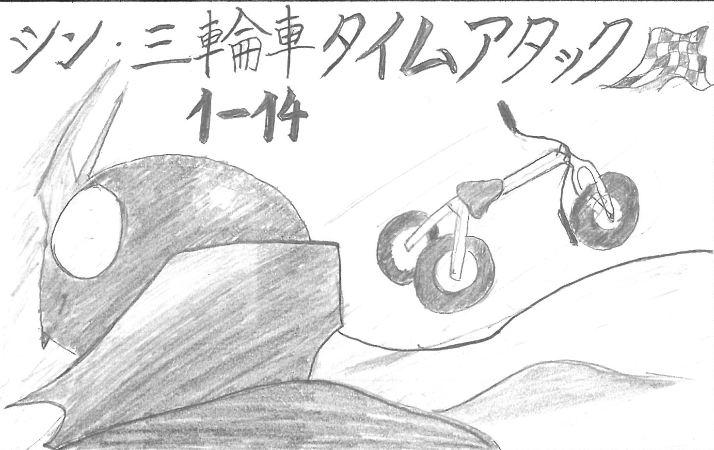 シン・三輪車タイムアタック
1-14